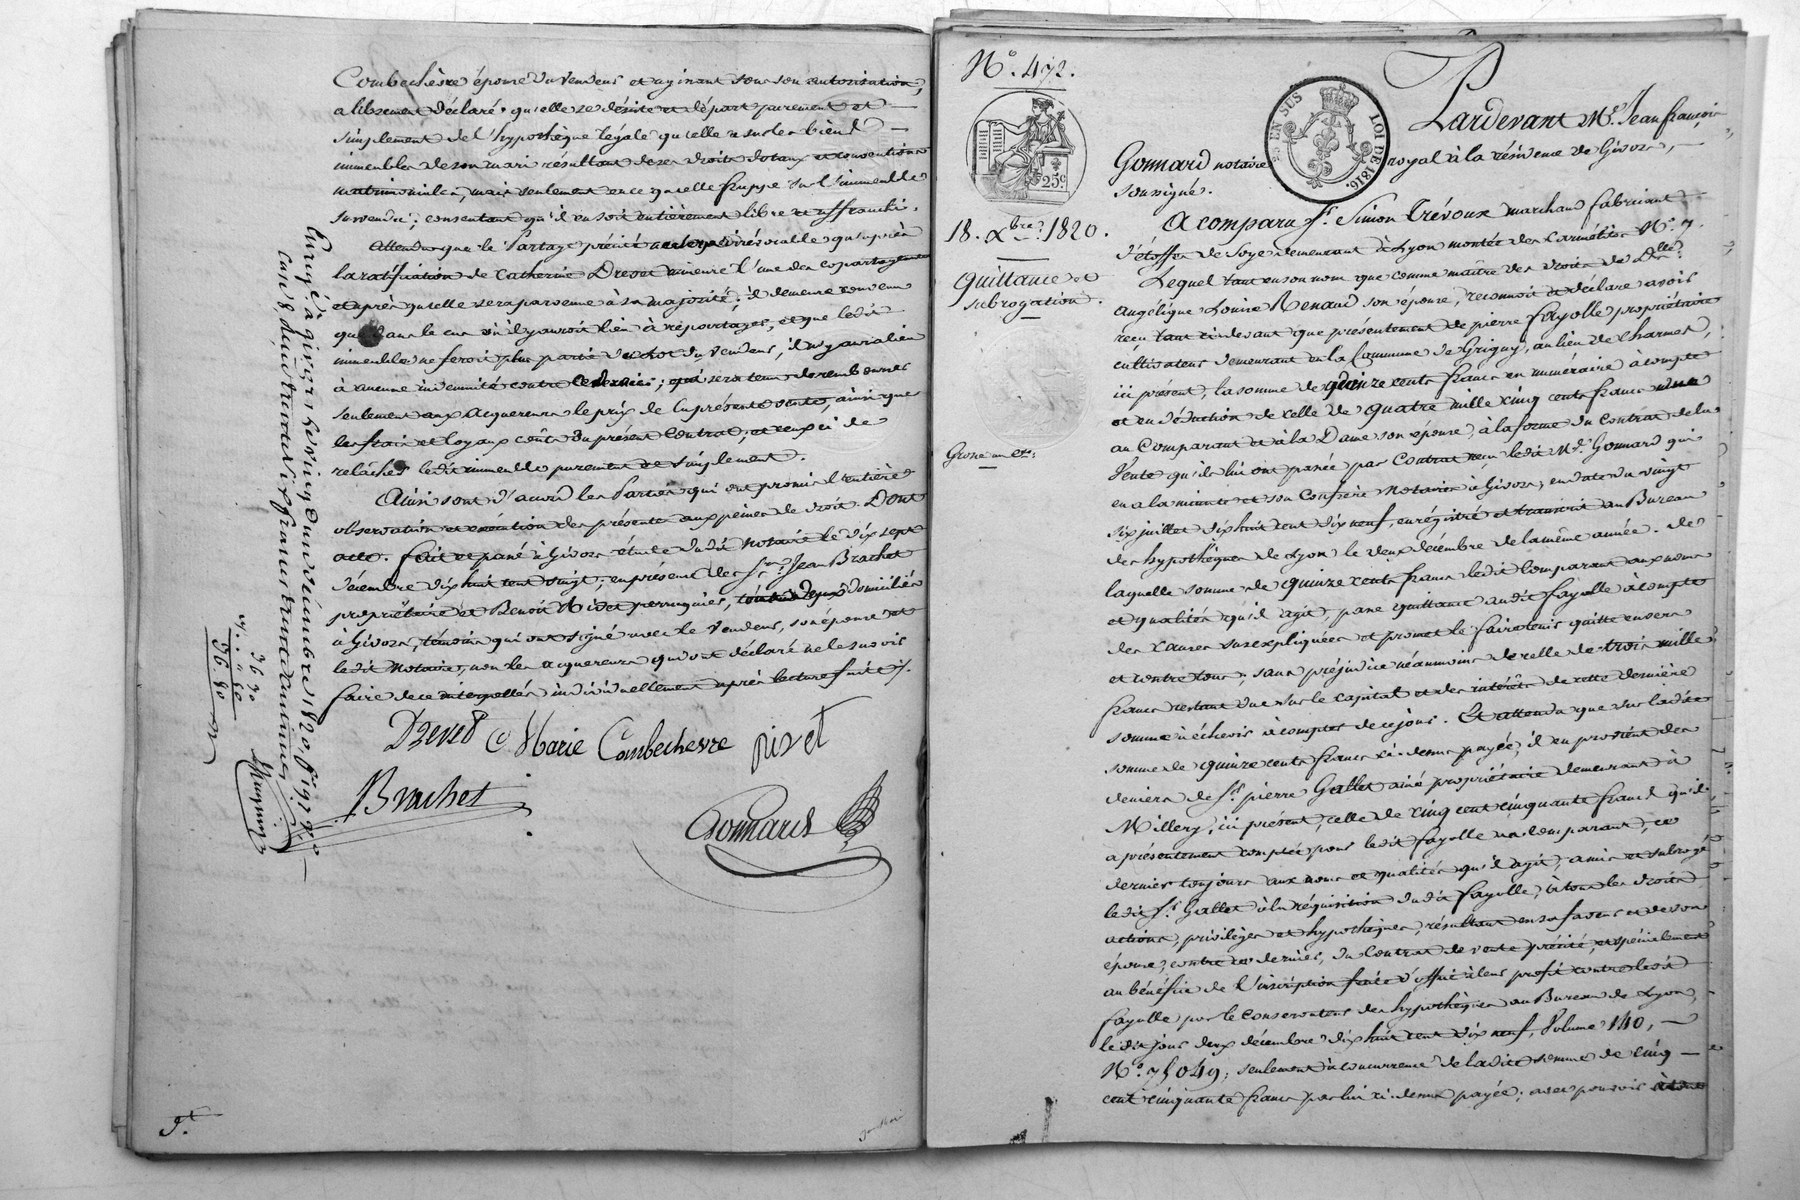 Combechèvre épouse du vendeur et agissant sous son autorisation,
a librement déclaré qu'elle se désiste et départ purement et
simplement de l'hypothèque légale qu'elle a sur les biens
immeubles de son mari résultant de ses droits dotaux et conventions
matrimoniales, mais seulement en ce qu'elle frappe sur l'immeuble
survendu; consentant qu'il en soit entièrement libre et affranchi.
Attendu que le Partage précité ne sera irrévocable qu'après
la ratification de Catherine Drevet mineure l'une des copartageants
et après qu'elle sera parvenue à sa majorité; il demeure convenu
que dans le cas où il y auroit lieu à repartager, et que ledit
immeuble ne feroit plus partie du lot du vendeur, il n'y aura lieu
à aucune indemnité contre ce dernier; qui sera tenu de rembourser
seulement aux acquereurs le prix de la présente vente, ainsi que
les frais et loyaux coûts du présent Contrat, et ceux ci de
relâcher ledit immeuble purement et simplement.
Ainsi sont d'accord les Parties qui ont promis l'entière
observation et exécution des présentes aux peines de droit. Dont
acte. fait et passé à Givors étude dudit Notaire le dix sept
décembre dix huit cent vingt; en présence des Srs. Jean Brachet
propriétaire et Benoit Rivet perruquier, tous deux domiciliés
à Givors, témoins qui ont signé avec le Vendeur, son épouse et
ledit Notaire, non les acquereurs qui ont déclaré ne le savoir
faire de ce interpellés individuellement après lecture faite.
Drevet C Marie Combechevre rivet
Brachet
Gonnard
Enregé. à givors le vingt un décembre 1820, fo. 197
36 70
" 60
36 80
N°. 472.
25 c
18. Xbre. 1820.
Quittance et
subrogation.
Grosse en et:
EN SUS
LOI DE 1816.
Pardevant Me. Jean françois
Gonnard notaire royal à la résidence de Givors,
soussigné.
A comparu Sr. Simon Trévoux marchand fabricant
d'étoffes de soye demeurant à Lyon montée des Carmélites N°. 7.
Lequel tant en son nom que comme maître des droits de Dlle.
angélique Louise Renaud son épouse, reconnoit et déclare avoir
reçu tant ci devant que présentement de pierre fayolle propriétaire
cultivateur demeurant en la Commune de Grigny, au lieu de charmes,
ici présent, la somme de quinze cents francs en numéraire à compte
et en déduction de celle de quatre mille cinq cents francs due
au Comparant et à la Dame son épouse, à la forme du Contrat de la
Vente qu'ils lui ont passée par Contrat reçu ledit Me. Gonnard qui
en a la minute et son Confrère Notaires à Givors, en date du vingt
six juillet dix huit cent dix neuf, enregistré et transcrit au Bureau
des hypothèques de Lyon le deux décembre de la même année. de
laquelle somme de quinze cents francs ledit Comparant aux noms
et qualités qu'il agit, passe quittance audit fayolle à compte
des causes susexpliquées et promet le faire tenir quitte envers
et contre tous, sans préjudice néanmoins de celle de trois mille
francs restant due sur le capital et des intérêts de cette dernière
somme à échoir à compter de ce jour. Et attendu que sur ladite
somme de quinze cents francs ci-dessus payée, il en provient des
deniers de Sr. pierre Gallet ainé propriétaire demeurant à
Millery, ici présent, celle de cinq cent cinquante francs qu'il
a présentement comptée pour ledit fayolle au Comparant, ce
dernier toujours aux noms et qualités qu'il agit, a mis et subrogé
ledit Sr. Gallet à la réquisition dudit fayolle, à tous les droits
actions, privilèges et hypothèques, résultant en sa faveur et de son
épouse, contre ce dernier, du Contrat de vente précité, et spécialement
au bénéfice de l'inscription faite d'office à leur profit contre ledit
fayolle par le Conservateur des hypothèques au Bureau de Lyon,
ledit jour deux décembre dix huit cent dix neuf, Volume 140,
N°. 75049; seulement à concurrence de ladite somme de cinq
cent cinquante francs par lui ci-dessus payée; avec pouvoir